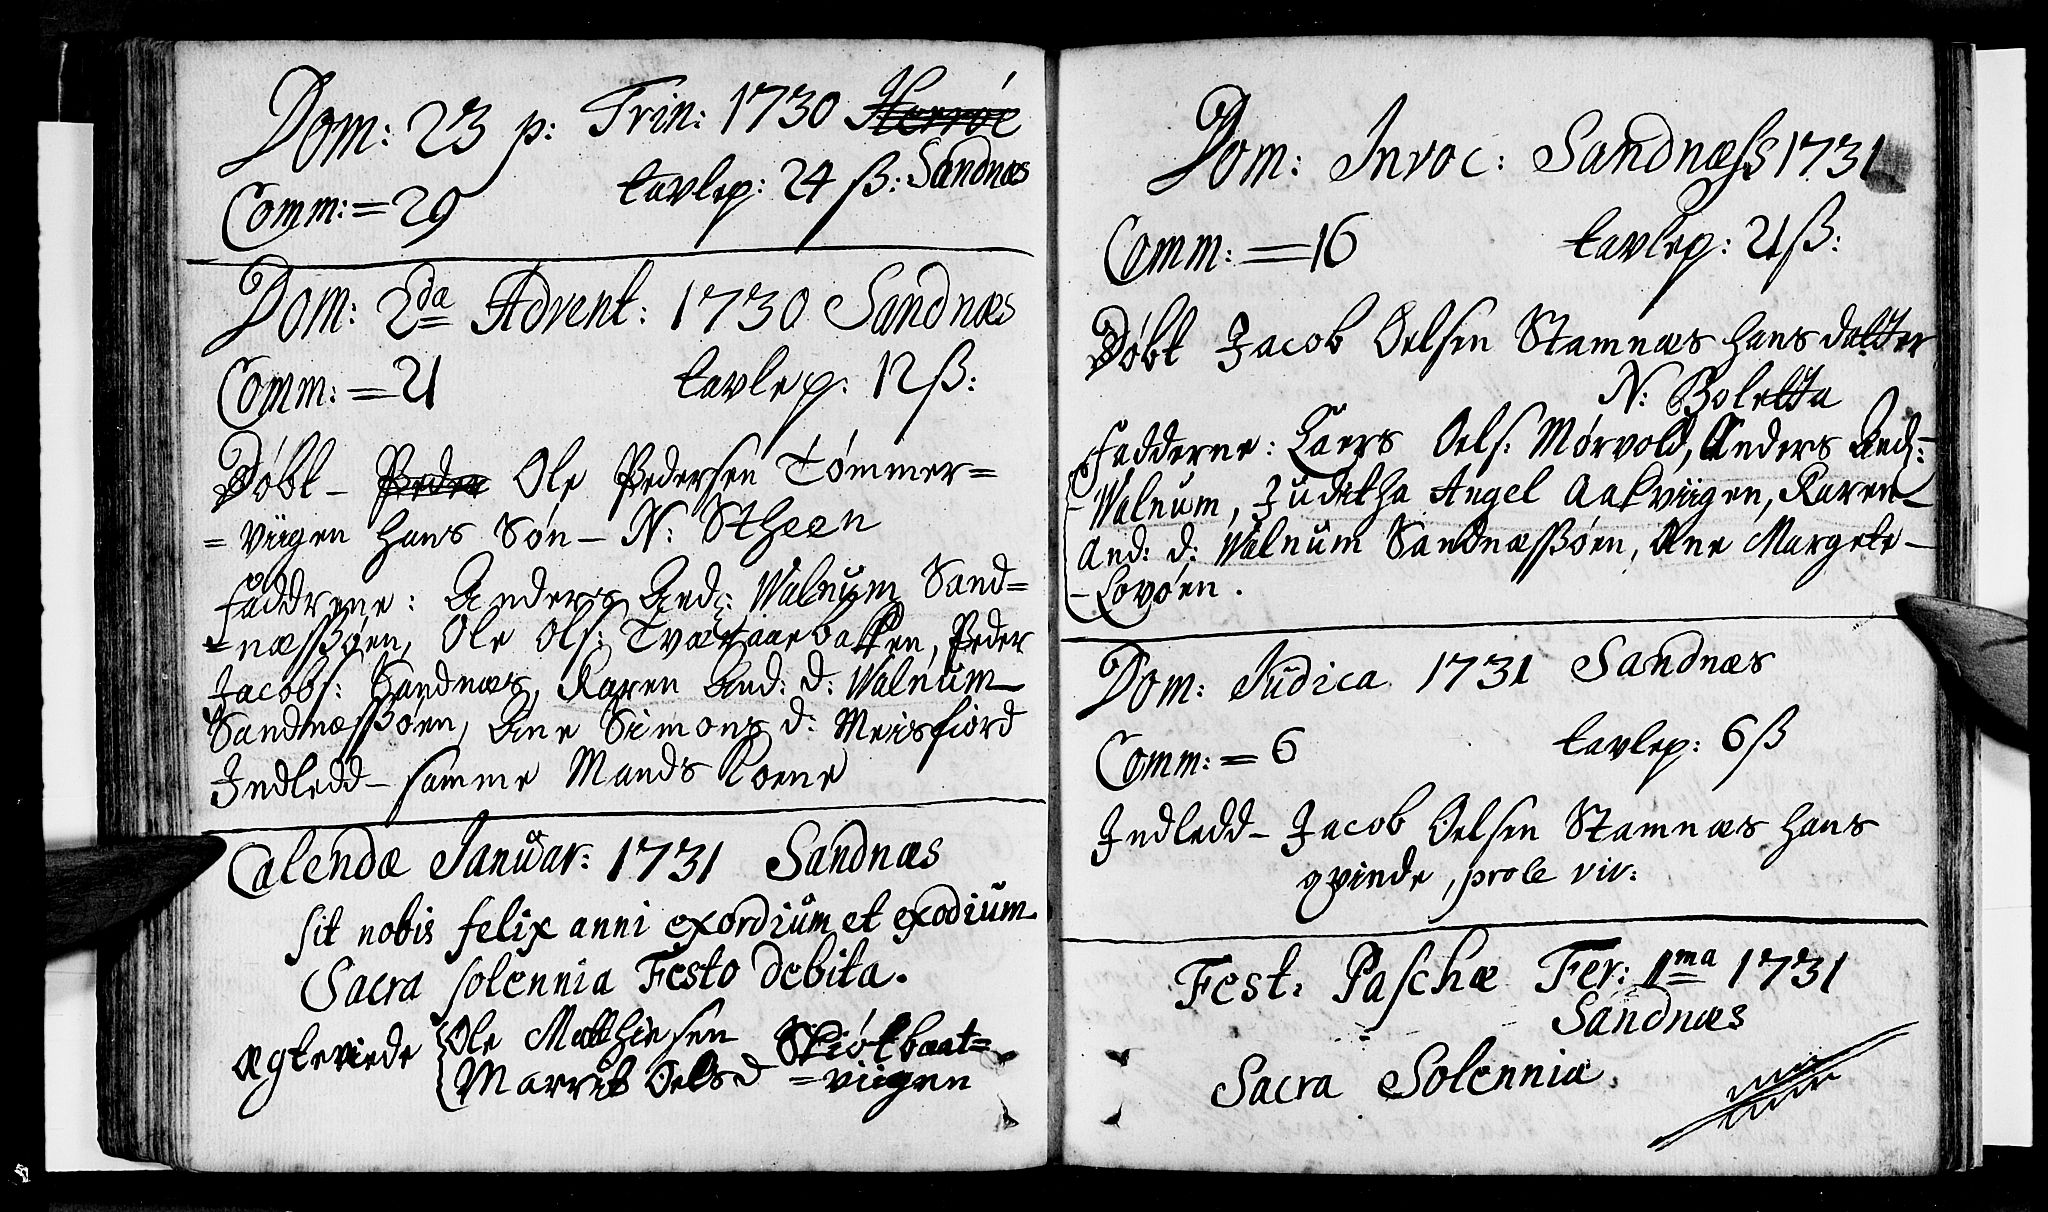 Dom: 23 p: Trin: 1730 Herröe
Comm: = 29 tavlep: 24 ß: Sandnæs
Dom: 2da Advent: 1730 Sandnæs
Comm: = 21 tavlep: 12 ß:
Döbt – Peder Ole Pedersen Tömmer=
= viigen hans Sön – N: Stheen
faddrene: Anders And: Walnum Sand=
= næssßöen, Ole Ols: Tværaaebakken, Peder
Jacobs: Sandnæs, Karen And: d: Walnum
Sandnæssßöen, Ane Simons d: Meisfiord
Indledd – samme Mands Koene
Calendæ Januar: 1731 Sandnæs
sit nobis felix anni exordium et exodium
Sacra solennia Festo debita.
Ægteviede { Ole Matthiesen Skiötbaat=
Marrit Oelsd = viigen
Dom: Invoc: Sandnæss 1731
Comm: = 16 tavlep: 21 ß:
Döbt Jacob Oelsen Stamnæs hans datter
N: Boletta
Fadderne: Laers Oels: Mörvold, Anders And:=
– Walnum, Juditha Angel Aakviigen, Karen
And: d: Walnum Sandnæssßöen, Ane Margete –
– Lovöen.
Dom: Judica 1731 Sandnæs
Comm: = 6 tavlep: 6 ß
Indledd – Jacob Oelsen Stamnæs hans
qvinde, prole viv:
Fest: Paschæ Fer: 1ma 1731
Sandnæs
Sacra Solennia.